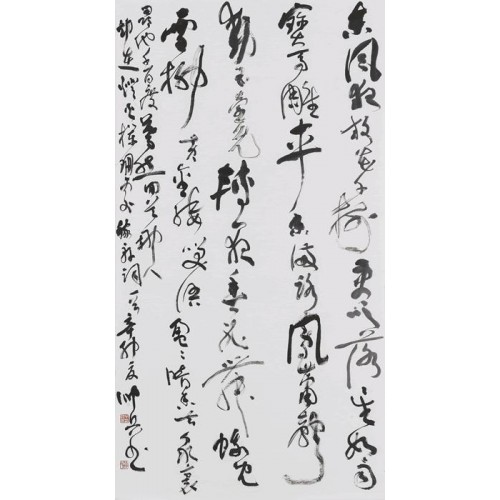 东風夜放花千樹更吹落星如雨
寶馬雕車香滿路鳳簫聲
動玉壺光轉一夜魚龍舞蛾兒
雪柳黃金縷笑語盈盈暗香去衆裏
尋他千百度驀然回首那人
却在燈火闌珊處稼軒詞一首辛卯夏